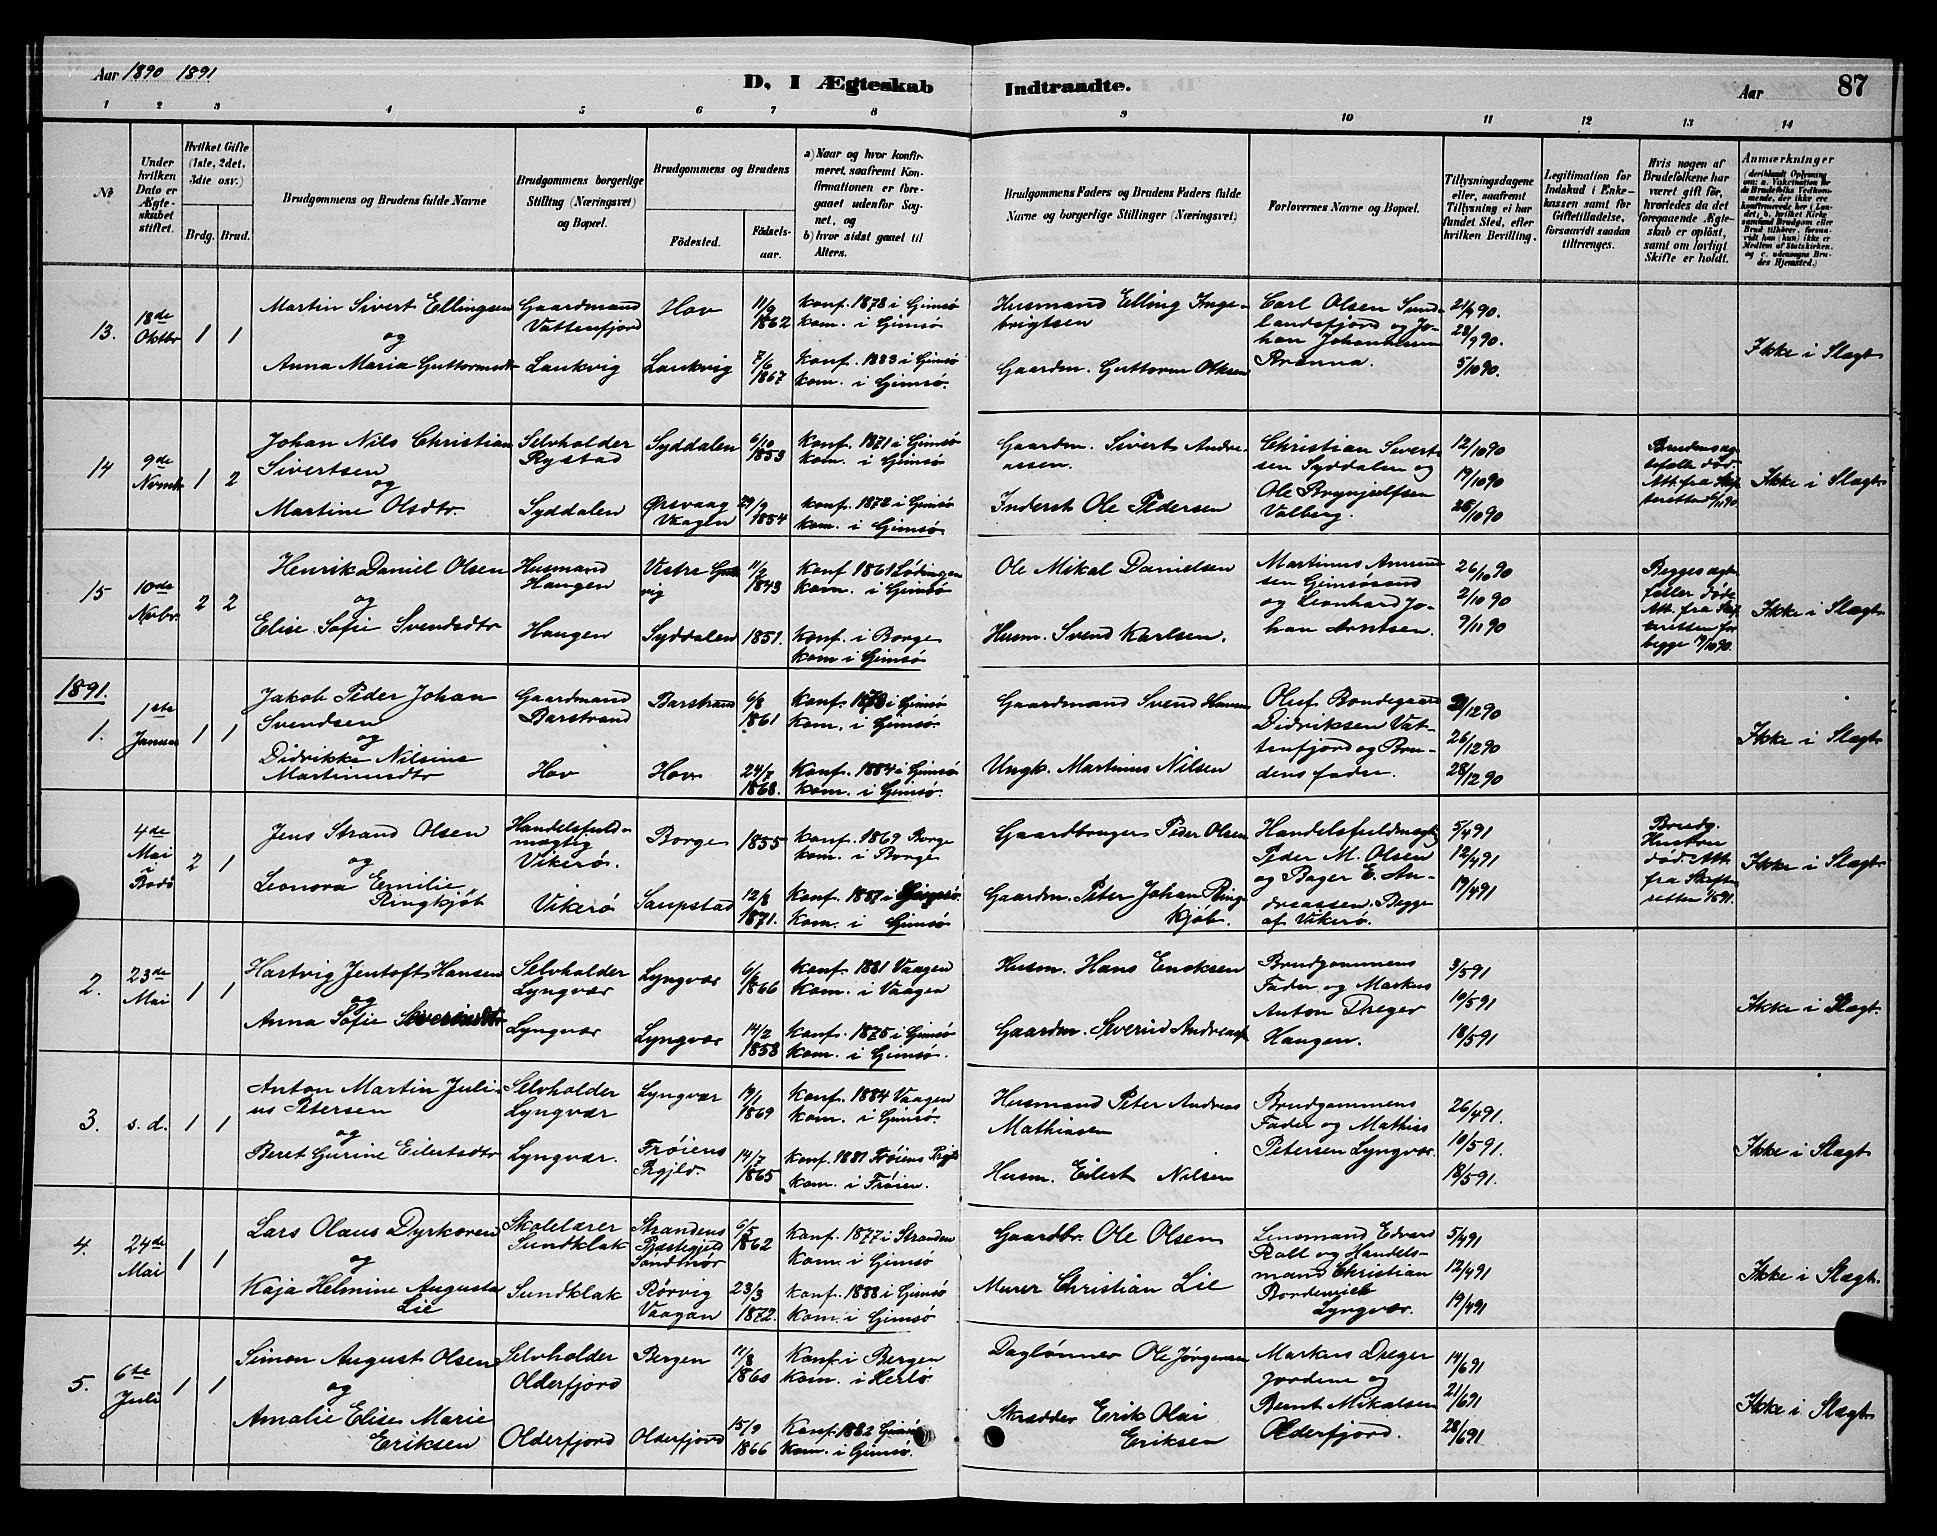 Aar 1890 1891
D. I Ægteskab Indtraadte.
Aar
87
1 2 3 4 5 6 7 8 9 10 11 12 13 14
No
Under hvilken Dato er Ægteskabet stiftet.
Hvilket Gifte (1ste, 2det, 3die osv.)
Brdg. Brud.
Brudgommens og Brudens fulde Navne
Brudgommens borgerlige Stilling (Næringsvei) og Bopæl.
Brudgommens og Brudens
Fødested.
Fødselsaar.
a) Naar og hvor konfirmeret, saafremt Konfirmationen er foregaaet udenfor Sognet, og
b) hvor sidst gaaet til Alters.
Brudgommens Faders og Brudens Faders fulde Navne og borgerlige Stillinger (Næringsvei)
Forlovernes Navne og Bopæl.
Tillysningsdagene eller, saafremt Tillysning ei har fundet Sted, efter hvilken Bevilling.
Legitimation for Indskud i Enkekassen samt for Giftetilladelse, forsaavidt saadan tiltrænges.
Hvis nogen af Brudefolkene har været gift før, hvorledes da det foregaaende Ægteskab er opløst, samt om lovligt Skifte er holdt.
Anmærkninger
13. 18de Oktbr 1 1
Martin Sivert Ellingsen
og
Anna Maria Guttormsdtr
Gaardmand Vattenfjord
Laukvig
Hov 11/9 1862
Laukvig 7/6 1867
konf. 1878 i Gimsø
kom. i Gimsø
konf. 1883 i Gimsø
kom. i Gimsø.
Husmand Elling Ingebrigtsen
Gaardm. Guttorm Olsen
Carl Olsen Sundlandsfjord og Johan Johannessen Brenna.
21/9 90.
28/9 90.
5/10 90.
Ikke i Slægt
14 9de Nvmbr 1 2
Johan Nils Christian
Sivertsen
og
Martine Olsdtr.
Selvholder Rystad
Syddalen
Syddalen 6/10 1853
Ørsvaag Vaagen 29/9 1854
konf. 1871 i Gimsø
kom. i Gimsø
konf. 1872 i Gimsø
kom. i Gimsø
Gaardm. Sivert Andreassen.
Inderst Ole Pedersen
Christian Sivertsen Syddalen og
Ole Brynjelfsen
Valberg.
12/10 90
19/10 90
26/10 90
Brudens ægtefælle død. Att. fra Skifteretten
Ikke i Slægt
15 10de Nvbr. 2 2
Henrik Daniel Olsen
og
Elise Sofie Svendsdtr
Husmand Haugen
Haugen
Vestre 11/2 1843
Syddalen 1851.
konf 1861 Lødingen
kom. i Gimsø
konf. i Borge
kom i Gimsø
Ole Mikal Danielsen
Husm. Svend Karlsen.
Martinus Amundsen Gimsøsund
og Leonhard Johan Arntsen.
26/10 90
2/10 90
9/11 90
Begges ægtefæller døde. Att. fra Skifteretten for begge
Ikke i Slægt
1891.
1. 1ste Januar 1 1
Jakob Peder Johan
Svendsen
og
Didrikke Nilsine
Martinusdtr
Gaardmand Barstrand
Hov
Barstrand 6/8 1861
Hov 24/7 1868.
konf. i Gimsø
kom. i Gimsø.
konf. 1884 i Gimsø
kom. i Gimsø.
Gaardmand Svend Hansen
Ungk. Martinus Nilsen
Oluf Bondegaard
Didriksen Vattenfjord og Brudens fader.
/12 90
26/12 90
28/12 90
Ikke i Slægt
4de Mai Bodø 2 1
Jens Strand Olsen
og
Leonora Emilie
Ringkjøb
Handelsfuldmægtig Vikerø.
Vikerø
Borge 1855
Saupstad 12/8 1871.
konf. 1869 Borge
kom. i Borge
konf. 1887 i Gimsø.
kom. i Gimsø
Gaardbruger Peder Olsen
Gaardm. Peter Johan Ringkjøb.
Handelsfuldmægtig
Peder M. Olsen
og Bager E. Andreassen. Begge
af Vikerø.
5/4 91
12/4 91
19/4 91
Brudg. Hustru død. Att. fra Skifteretten
Ikke i Slægt
2. 23de Mai 1 1
Hartvig Jentoft Hansen
og
Anna Sofie
Selvholder Lyngvær
Lyngvær
Lyngvær 6/8 1866
Lyngvær 14/2 1858
konf. 1881 Vaagen
kom. i Vaagen
konf. 1875 i Gimsø
kom. i Gimsø.
Husm. Hans Enoksen
Gaardm. Severin Andreas
Brudgommens
Fader og Markus
Anton Dreyer
Haugen.
3/5 91
10/5 91
18/5 91
Ikke i Slægt
3. s. d. 1 1
Anton Martin Julius Petersen
og
Beret Gurine Eilertsdtr
Selvholder Lyngvær
Lyngvær.
Lyngvær 19/1 1869
Frøiens Prgjld. 14/7 1865
konf. 1884 Vaagen
kom. i Gimsø.
konf. 1881 Frøiens Prgjld
kom. i Frøien.
Husmand Peter Andreas
Mathiasen
Husm. Eilert Nilsen
Brudgommens
Fader og Mathias
Petersen Lyngvær.
26/4 91.
10/5 91.
18/5 91.
Ikke i Slægt
4. 24de Mai 1 1
Lars Olaus Dyrkoren
og
Kaja Helmine Augusta
Lie
Skolelærer Sundklak
Sundklak
Strandens Præstegjeld Søndmør 6/5 1862
Rørvig Vaagan 23/3 1872.
konf. 1877 i Stranden
kom. i Gimsø
konf. 1888 i Gimsø
kom. i Gimsø
Gaardbr. Ole Olsen
Murer Christian Lie
Lensmand Edvard
Rall og Handelsmand Christian
Lyngvær.
5/4 91
12/4 91
19/4 91
Ikke i Slægt.
5. 6te Juli 1 1
Simon August Olsen
og
Amalie Elise Marie
Eriksen
Selvholder Olderfjord
Olderfjord
Bergen 11/8 1860
Olderfjord 15/9 1866
Konf. i Bergen
kom. i Herlø.
Konf. 1882 Gimsø
kom. i Gimsø.
Daglønner Ole Jørgensen
Skrædder Erik Olai
Eriksen
Markus Dreyer
og
Bernt Mikalsen
Olderfjord.
14/6 91
21/6 91
28/6 91
Ikke i Slægt